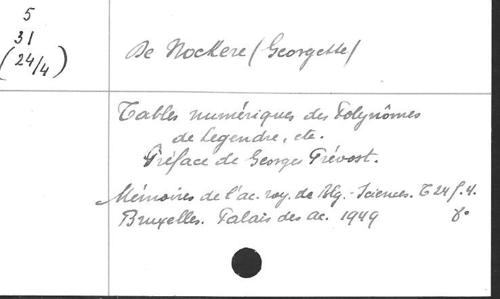 5
31
(24/4)
De Nockere (Georgette)
Tables numériques des Polynômes
de Legendre, etc.
Préface de Georges Prévost.
Mémoires de l'ac. roy. de Blg. - Sciences. T 24 f. 4.
Bruxelles. Palais des ac. 1949 8°